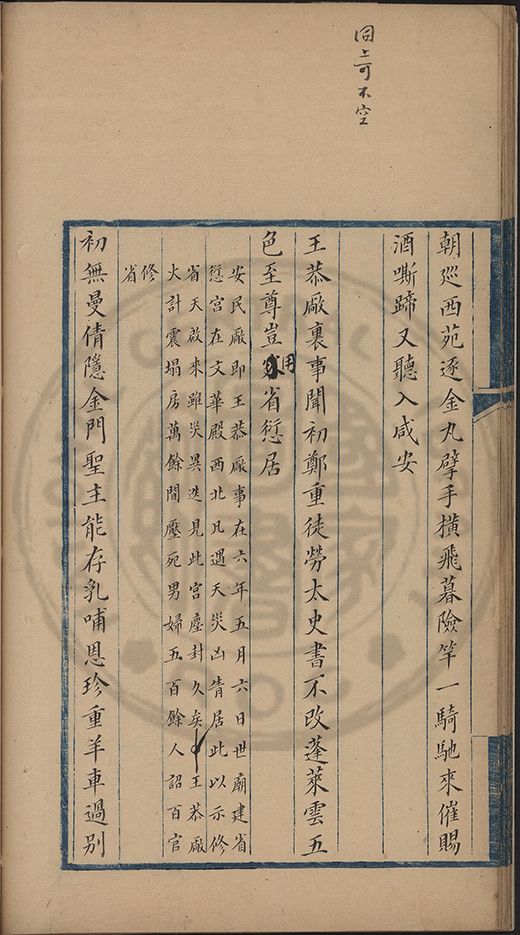 朝巡西苑逐金丸擘手橫飛暮險竿一騎馳來催賜
酒嘶蹄又聽入咸安
王恭厰裏事聞初鄭重徒勞太史書不改蓬萊雲五
色至尊豈用省愆居
安民厰即王恭厰事在六年五月六日世廟建省
愆宮在文華殿西北凡遇天災凶眚居此以示修
省天啟來雖災異迭見此宮塵封久矣○王恭厰
大計震塌房萬餘間壓死男婦五百餘人詔百官
修
省
初無曼倩隱金門聖主能存乳哺恩珍重羊車過別